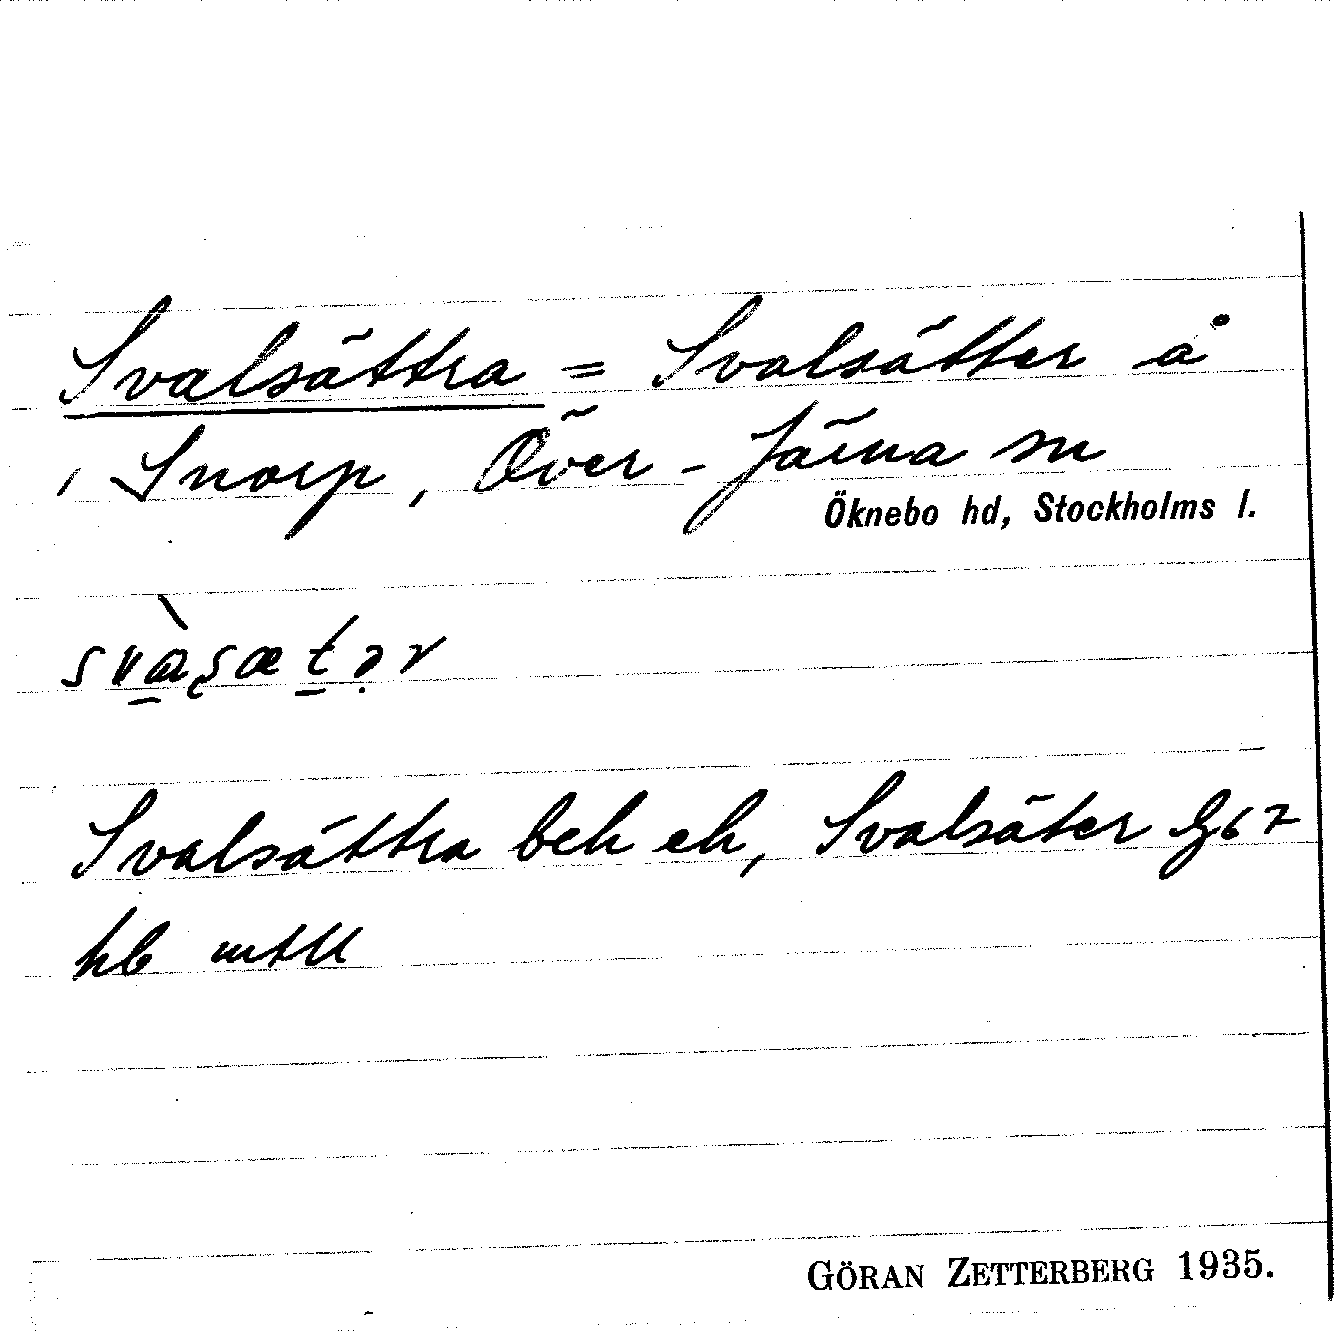 Svalsättra = Svalsätter å
i Snorp, Över-Järna sn
Öknebo hd, Stockholms l.
Svalsättra bch ek, Svalsäter G67
hb mtll
GÖRAN ZETTERBERG 1935.